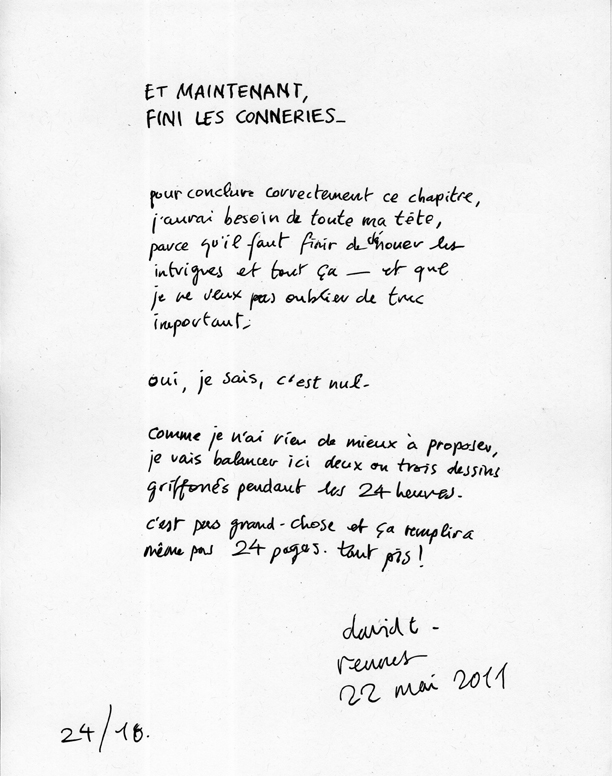 ET MAINTENANT,
FINI LES CONNERIES_
pour conclure correctement ce chapitre,
j'aurai besoin de toute ma tête,
parce qu'il faut finir de dénouer les
intrigues et tout ça — et que
je ne veux pas oublier de truc
important.
oui, je sais, c'est nul.
comme je n'ai rien de mieux à proposer,
je vais balancer ici deux ou trois dessins
griffonés pendant les 24 heures.
c'est pas grand-chose et ça remplira
même pas 24 pages. tant pis !
david t -
rennes
22 mai 2011
24/18.